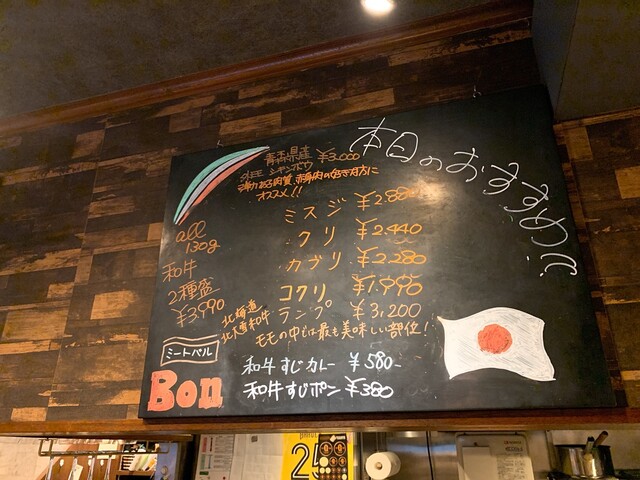 本日のおすすめ!!
青森県産 ¥3,000
シャンボウ
弾力ある肉質、赤身肉の好き方に
オススメ!!
all
130g
ミスジ ¥2,880
クリ ¥2,440
カブリ ¥2,280
コクリ ¥1,990
北海道
北大雪和牛
ランプ ¥3,200
モモの中では最も美味しい部位!
和牛
2種盛
¥3,990
和牛すじカレー ¥580-
和牛すじポン ¥380
ミートバル
Bon
25